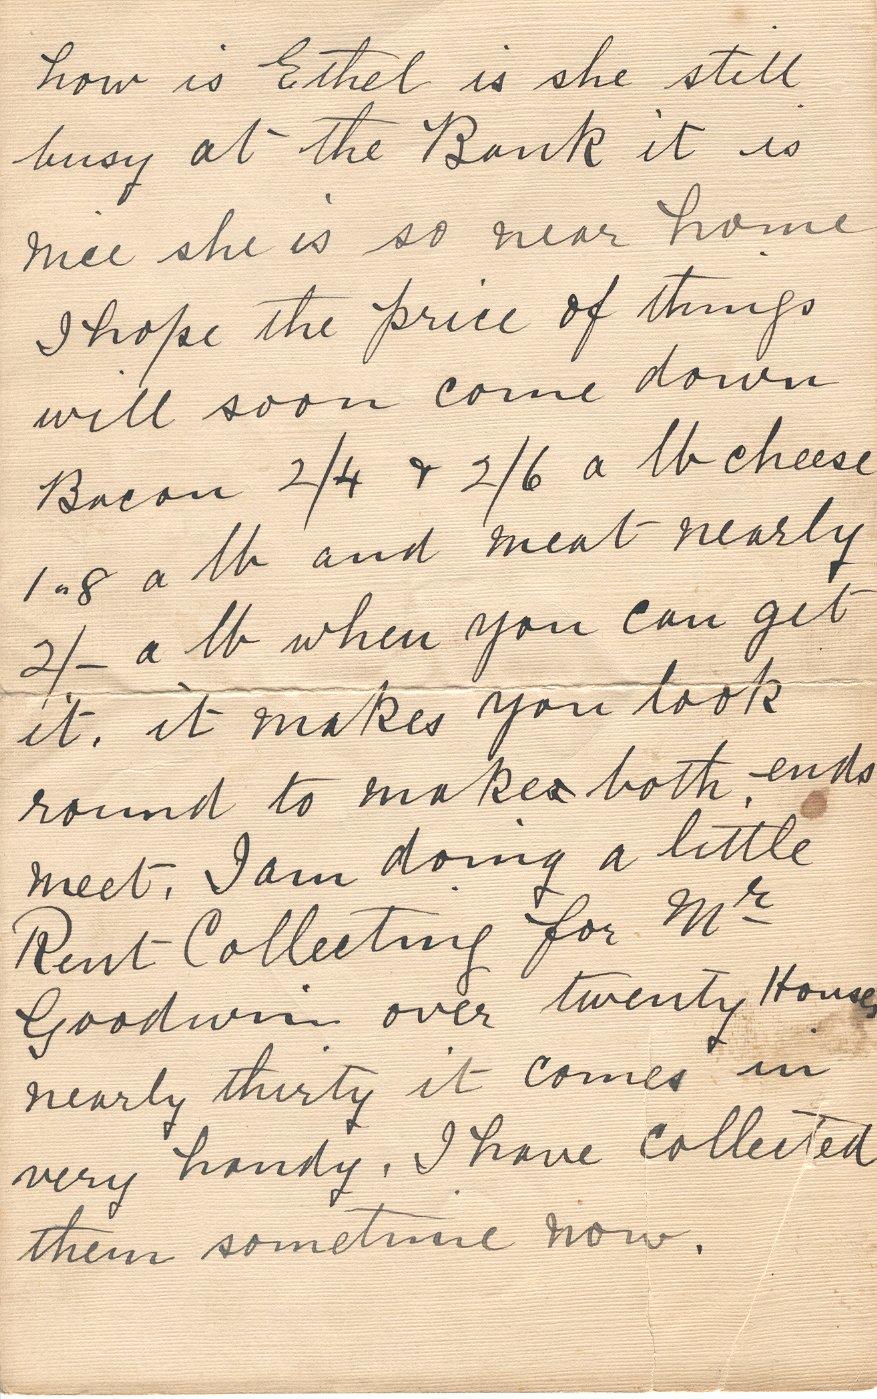 how is Ethel is she still
busy at the Bank it is
nice she is so near home
I hope the price of things
will soon come down
Bacon 2/4 & 2/6 a lb cheese
1"8 a lb and meat nearly
2/- a lb when you can get
it. it makes you look
round to make both ends
meet. I am doing a little
Rent Collecting for Mr
Goodwin over twenty Houses
nearly thirty it comes in
very handy. I have collected
them sometime now.